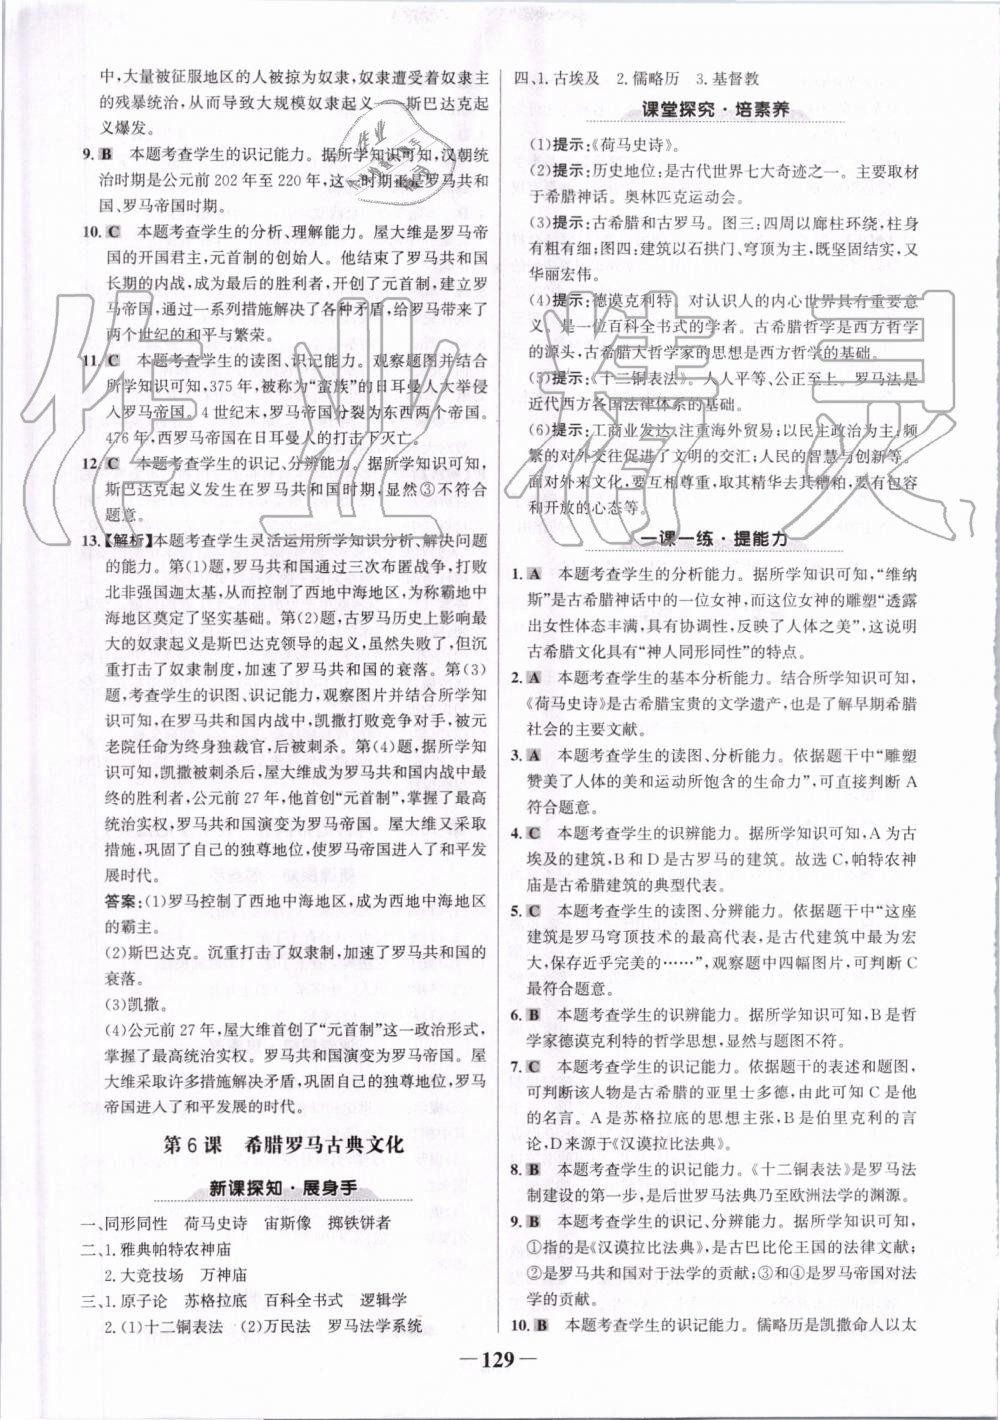 中,大量被征服地区的人被掠为奴隶,奴隶遭受着奴隶主
的残暴统治,从而导致大规模奴隶起义——斯巴达克起
义爆发。
9. B 本题考查学生的识记能力。据所学知识可知,汉朝统
治时期是公元前 202 年至 220 年,这一时期正是罗马共和
国、罗马帝国时期。
10. C 本题考查学生的分析、理解能力。屋大维是罗马帝
国的开国君主,元首制的创始人。他结束了罗马共和国
长期的内战,成为最后的胜利者,开创了元首制,建立罗
马帝国,通过一系列措施解决了各种矛盾,给罗马带来了
两个世纪的和平与繁荣。
11. C 本题考查学生的读图、识记能力。观察题图并结合
所学知识可知,375 年,被称为“蛮族”的日耳曼人大举侵
入罗马帝国。4 世纪末,罗马帝国分裂为东西两个帝国。
476 年,西罗马帝国在日耳曼人的打击下灭亡。
12. C 本题考查学生的识记、分辨能力。据所学知识可知,
斯巴达克起义发生在罗马共和国时期,显然③不符合
题意。
13.【解析】本题考查学生灵活运用所学知识分析、解决问题
的能力。第(1)题,罗马共和国通过三次布匿战争,打败
北非强国迦太基,从而控制了西地中海地区,为称霸地中
海地区奠定了坚实基础。第(2)题,古罗马历史上影响最
大的奴隶起义是斯巴达克领导的起义,虽然失败了,但沉
重打击了奴隶制度,加速了罗马共和国的衰落。第(3)
题,考查学生的识图、识记能力,观察图片并结合所学知
识可知,在罗马共和国内战中,凯撒打败竞争对手,被元
老院任命为终身独裁官,后被刺杀。第(4)题,据所学知
识可知,凯撒被刺杀后,屋大维成为罗马共和国内战中最
终的胜利者,公元前 27 年,他首创“元首制”,掌握了最高
统治实权,罗马共和国演变为罗马帝国。屋大维又采取
措施,巩固了自己的独尊地位,使罗马帝国进入了和平发
展时代。
答案:(1)罗马控制了西地中海地区,成为西地中海地区
的霸主。
(2)斯巴达克。沉重打击了奴隶制,加速了罗马共和国的
衰落。
(3)凯撒。
(4)公元前 27 年,屋大维首创了“元首制”这一政治形式,
掌握了最高统治实权。罗马共和国演变为罗马帝国。屋
大维采取许多措施解决矛盾,巩固了自己的独尊地位,罗马
帝国进入了和平发展的时代。
第 6 课 希腊罗马古典文化
新课探知·展身手
一、同形同性 荷马史诗 宙斯像 掷铁饼者
二、1. 雅典帕特农神庙
2. 大竞技场 万神庙
三、1. 原子论 苏格拉底 百科全书式 逻辑学
2. (1)十二铜表法 (2)万民法 罗马法学系统
四、1. 古埃及 2. 儒略历 3. 基督教
课堂探究·培素养
(1)提示:《荷马史诗》。
(2)提示:历史地位:是古代世界七大奇迹之一。主要取材
于希腊神话。奥林匹克运动会。
(3)提示:古希腊和古罗马。图三:四周以廊柱环绕,柱身
有粗有细;图四:建筑以石拱门、穹顶为主,既坚固结实,又
华丽宏伟。
(4)提示:德谟克利特。对认识人的内心世界具有重要意
义,是一位百科全书式的学者。古希腊哲学是西方哲学
的源头,古希腊大哲学家的思想是西方哲学的基础。
(5)提示:《十二铜表法》。人人平等、公正至上。罗马法是
近代西方各国法律体系的基础。
(6)提示:工商业发达,注重海外贸易;以民主政治为主;频
繁的对外交往促进了文明的交汇;人民的智慧与创新等。
面对外来文化,要互相尊重,取其精华去其糟粕,要有包容
和开放的心态等。
一课一练·提能力
1. A 本题考查学生的分析能力。据所学知识可知,“维纳
斯”是古希腊神话中的一位女神,而这位女神的雕塑“透露
出女性体态丰满,具有协调性,反映了人体之美”,这说明
古希腊文化具有“神人同形同性”的特点。
2. A 本题考查学生的基本分析能力。结合所学知识可知,
《荷马史诗》是古希腊宝贵的文学遗产,也是了解早期希腊
社会的主要文献。
3. A 本题考查学生的读图、分析能力。依据题干中“雕塑
赞美了人体的美和运动所饱含的生命力”,可直接判断 A
符合题意。
4. C 本题考查学生的识辨能力。据所学知识可知,A 为古
埃及的建筑,B 和 D 是古罗马的建筑。故选 C,帕特农神
庙是古希腊建筑的典型代表。
5. C 本题考查学生的读图、分辨能力。依据题干中“这座
建筑是罗马穹顶技术的最高代表,是古代建筑中最为宏
大,保存近乎完美的……”,观察题中四幅图片,可判断 C
最符合题意。
6. B 本题考查学生的识辨能力。据所学知识可知,B 是哲
学家德谟克利特的哲学思想,显然与题图不符。
7. C 本题考查学生的识记能力。依据题干的表述和题图,
可判断该人物是古希腊的亚里士多德,由此可知 C 是他
的名言。A 是苏格拉底的思想主张,B 是伯里克利的言
论,D 来源于《汉谟拉比法典》。
8. B 本题考查学生的识记能力。《十二铜表法》是罗马法
制建设的第一步,是后世罗马法典乃至欧洲法学的渊源。
9. B 本题考查学生的识记、分辨能力。据所学知识可知,
①指的是《汉谟拉比法典》,是古巴比伦王国的法律文献;
②是罗马共和国对于法学的贡献;③和④是罗马帝国对法
学的贡献。
10. B 本题考查学生的识记能力。儒略历是凯撒命人以太
— 129 —
作业精灵